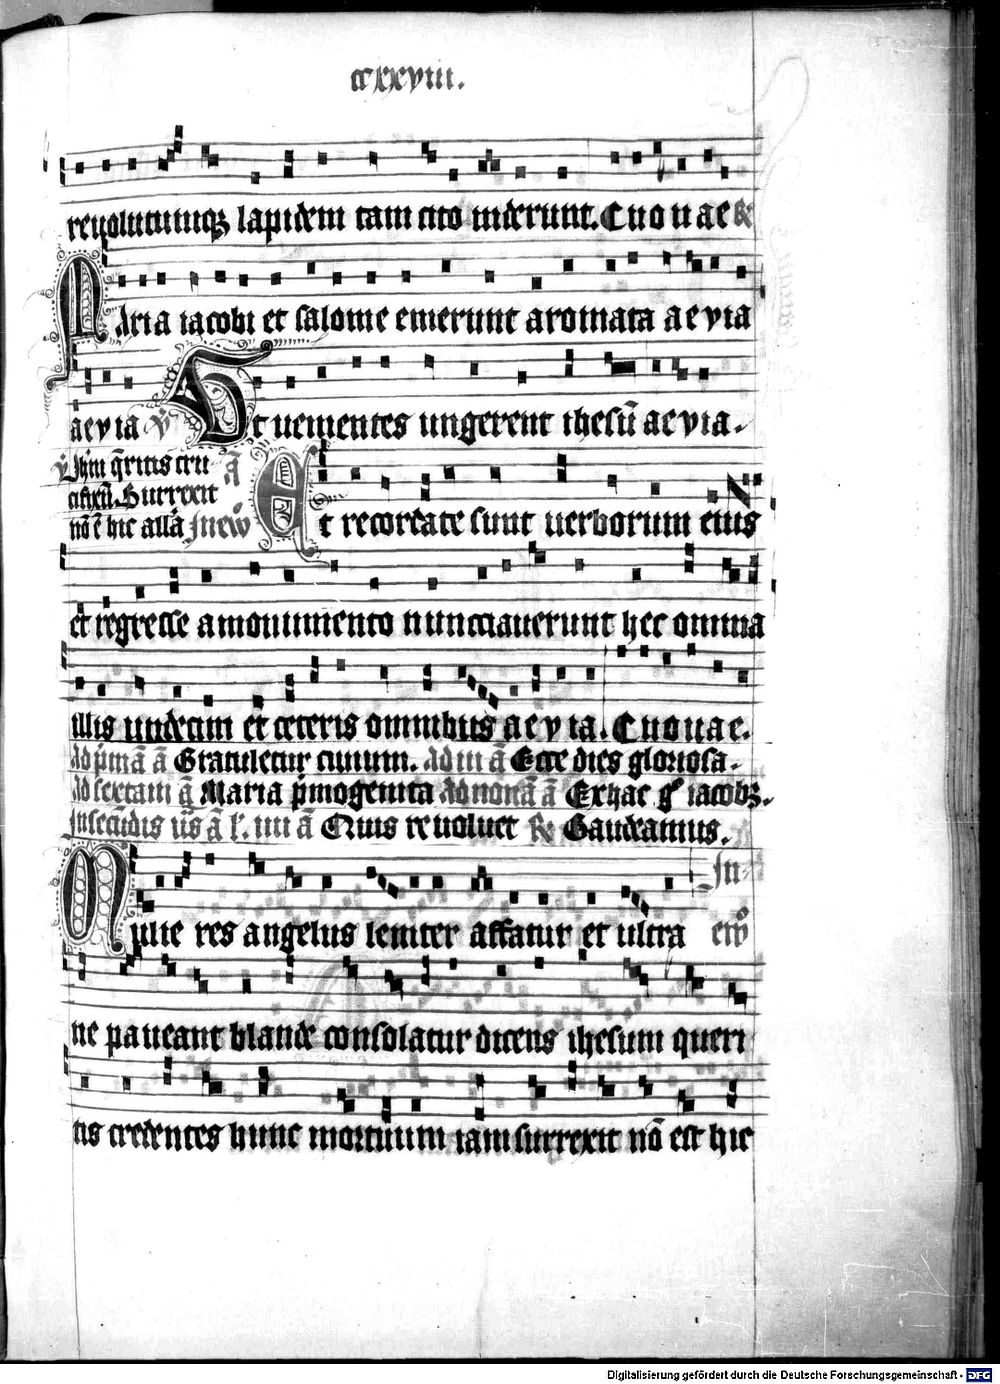 ccxxviii.
reuolutumqꝫ lapidem tam cito uiderunt. Euouae ℟
Maria iacobi et salome emerunt aromata aeuia
aeuia ℣ Ut uenientes ungerent ihesū aeuia.
℣ Ihm̄ q̄ritis cru
cifixū Surrexit
nō ē hic allā In eū
ā Et recordate sunt uerborum eius
et regresse a monumento nunctiauerunt hec omnia
illis undecim et ceteris omnibus aeuia. Euouae.
Ad p̄mā ā Gratuletur Ad iii ā Ecce dies gloriosa.
Ad sextam ā Maria p̄mogenita Ad nonā ā Ex hac iacobꝫ.
In secūdis ā Quis reuoluet ℟ Gaudeamus.
In
Mulie res angelus leniter affatur et ultra
ne paueant blande consolatur dicens ihesum queri
tis credentes hunc mortuum iam surrexit nō est hic
Digitalisierung gefördert durch die Deutsche Forschungsgemeinschaft - DFG